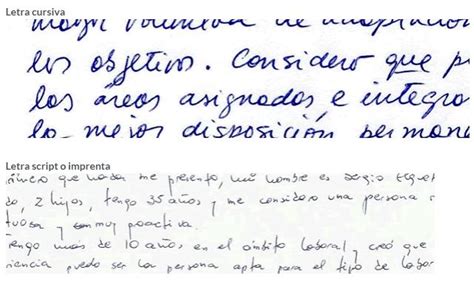 Letra cursiva
mayor voluntad de adaptación
los objetivos. Considero que p
las áreas asignadas, e integra
la mejor disposición perman
Letra script o imprenta
que me presento, mi nombre es Sergio
do, 2 hijos, tengo 35 años y me considero una persona
tuosa y soy muy proactiva.
Tengo más de 10 años, en el ámbito laboral, creo que
riencia puedo ser la persona apta para el tipo de labor